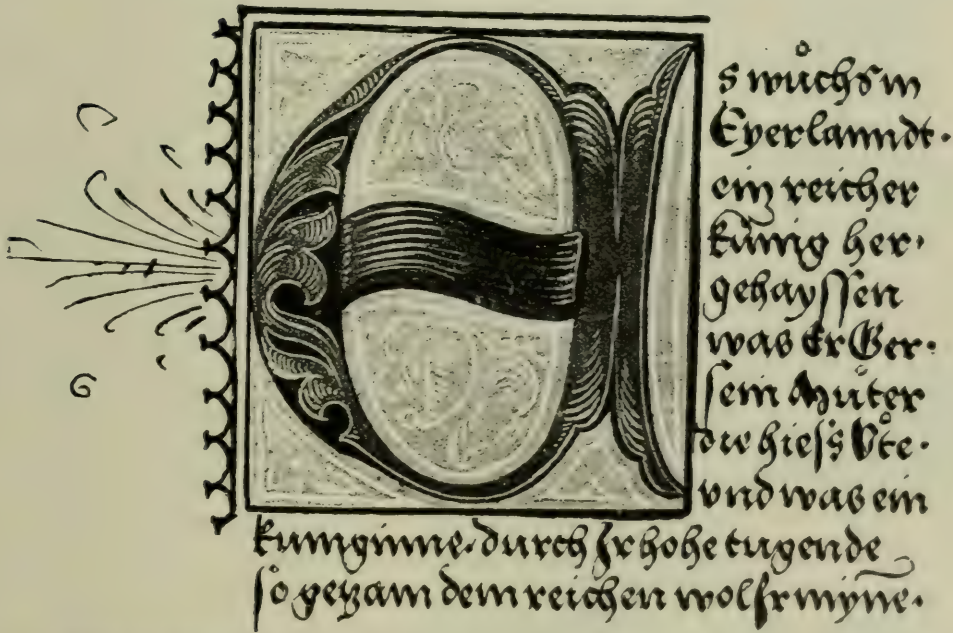 Es wůchs in
Eyerlanndt·
ein reicher
kůnig her·
gehayſſen
was Er Ger·
ſein Můter
die hieſs Ůte·
vnd was ein
kuniginne· durch Ir hohe tugende
ſo gezam dem reichen wol Ir myn̄e·